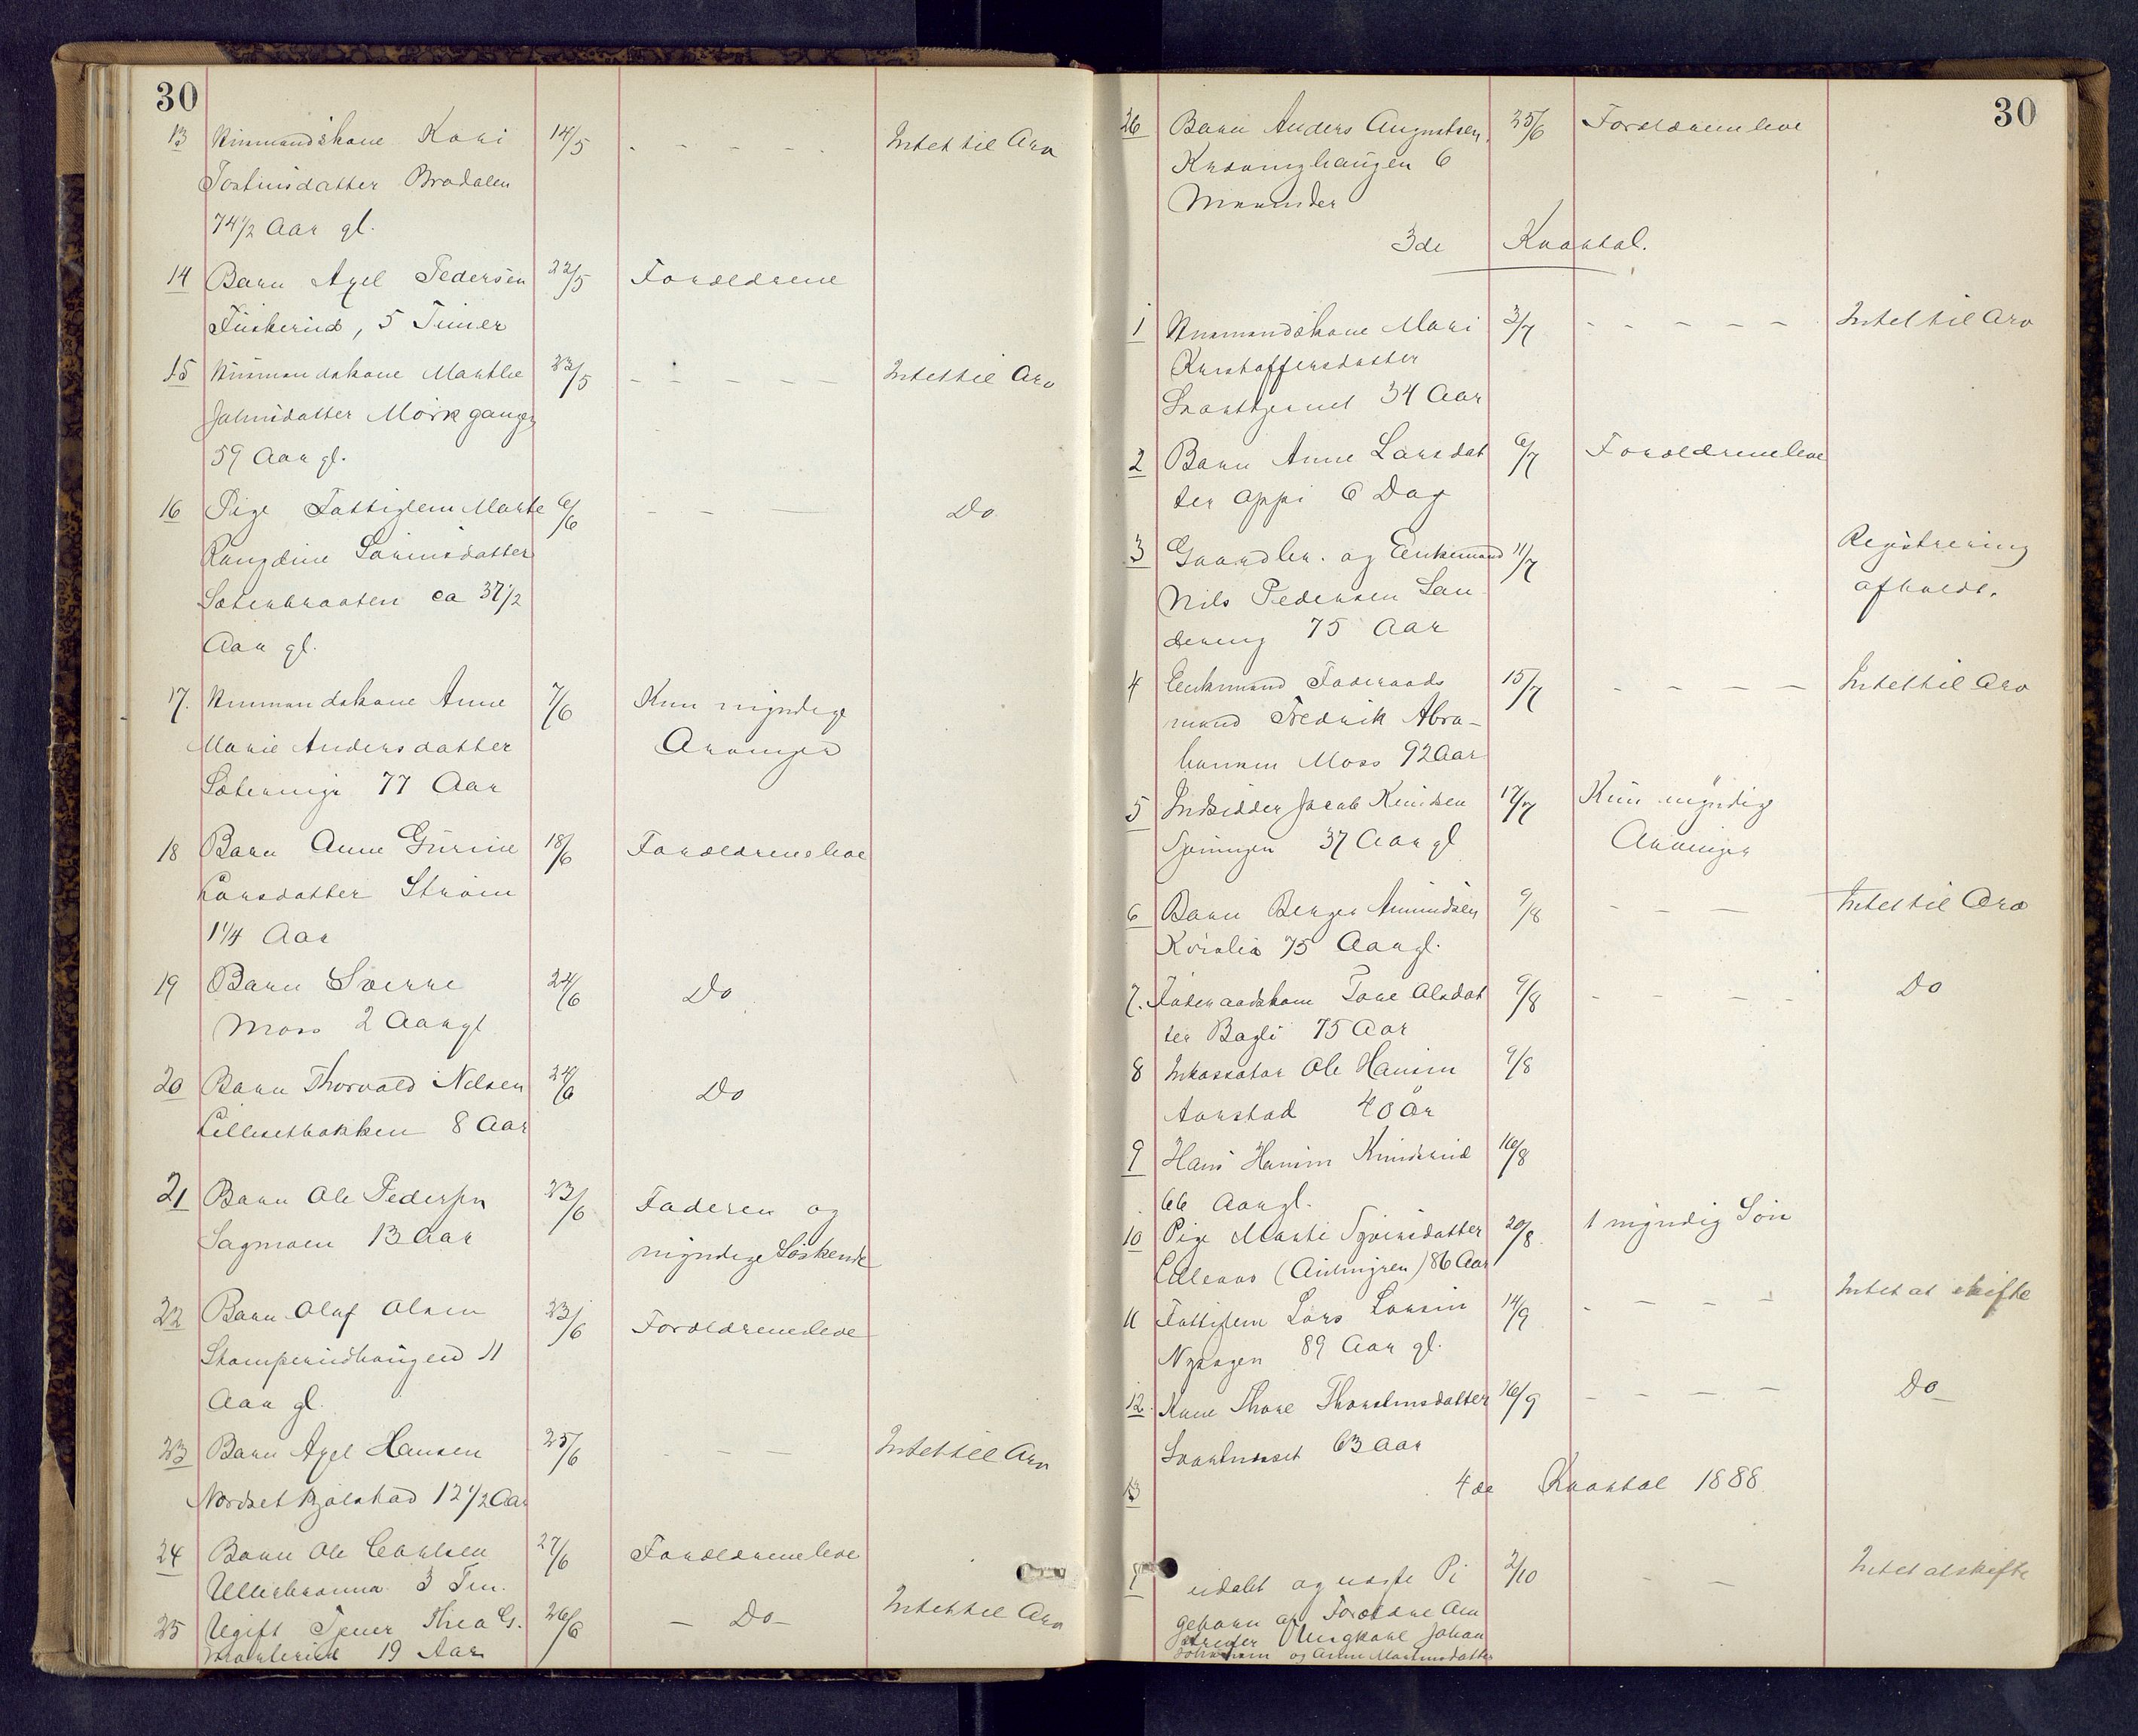 30
13 Husmandskone Kari 14/5 - - - - - Intet til Arv
Tostinsdatter Bradalen
74 1/2 Aar gl.
14 Barn Axel Pedersen 22/5 Forældrene
Fiiskerud, 5 Timer
15 Husmandskone Marthe 23/5 - - - - - Intet til Arv
Johnsdatter Mörkgangen
59 Aar gl.
16 Pige Fattiglem Marte 6/6 - - — Do
Sörensdatter
Sæterbraaten ca 37 1/2
Aar gl.
17. Husmandskone Anne 7/6 Kun myndige
Marie Andersdatter Arvinger
77 Aar
18 Barn Anne Gurine 18/6 Forældrene leve
Larsdatter Ström
1 1/4 Aar
19 Barn Sverre 24/6 Do
Moss 2 Aar gl
20 Barn Thorvald Nilsen 24/6 Do
Lillesetbakken 8 Aar
21 Barn Ole Pedersen 23/6 Faderen og
Sagmoen 13 Aar myndige Söskende
22 Barn Olaf Olsen 23/6 Forældrene leve
Stamperudhaugen 11
Aar gl.
23 Barn Axel Hansen 25/6 - - - Intet til Arv
Nordset Bjölstad 12 1/2 Aar
24 Barn Ole Carlsen 27/6 Forældrene leve
3 Tim.
25 Ugift Thea G. 26/6 - Do - Intet til Arv
19 Aar
30
26 Barn Anders Augustsen 25/6 Forældrene leve
6
Maaneder
3de Kvartal.
1 Husmandskone Mari 3/7 - - - - - Intet til Arv
Kristoffersdatter
Svarttjernet 34 Aar
2 Barn Anne Larsdat 6/7 Forældrene leve
ter Oppi 6 Dag
3 Gaardbr. og Enkemand 11/7 Registrering
Nils Pedersen Lan afholdt.
dereng 75 Aar
4 Enkemand Föderaads 15/7 - - - - Intet til Arv
mand Fredrik Abra-
hamsen Moss 92 Aar
5 Indsidder Jacob Knudsen 17/7 Kun myndige
37 Aar gl Arvinger
6 Barn Berger Amundsen 9/8 - - - Intet til Arv
75 Aar gl.
7. Föderaadskone Tore Olsdat 9/8 - - - - Do
ter Bagli 75 Aar
8 Inkassator Ole Hansen 9/8
Aarstad 40 År
9 Hans Hansen Knudsrud 16/8
66 Aar gl.
10 Pige Marthe Syversdatter 20/8. 1 myndig Sön
Lilleaas 86 Aar
11 Fattiglem Lars Larsen 14/9 - - - - Intet at skifte
Nyhagen 89 Aar gl.
12. Kone Thore Thorstensdatter 16/9 - - - - Do
63 Aar
13 4de Kvartal 1888
1 udöbt og Pi 2/10 - - Intet at skifte
gebarn af Forældre Ar
beider Ungkarl Johan
og Anne Martinsdatter